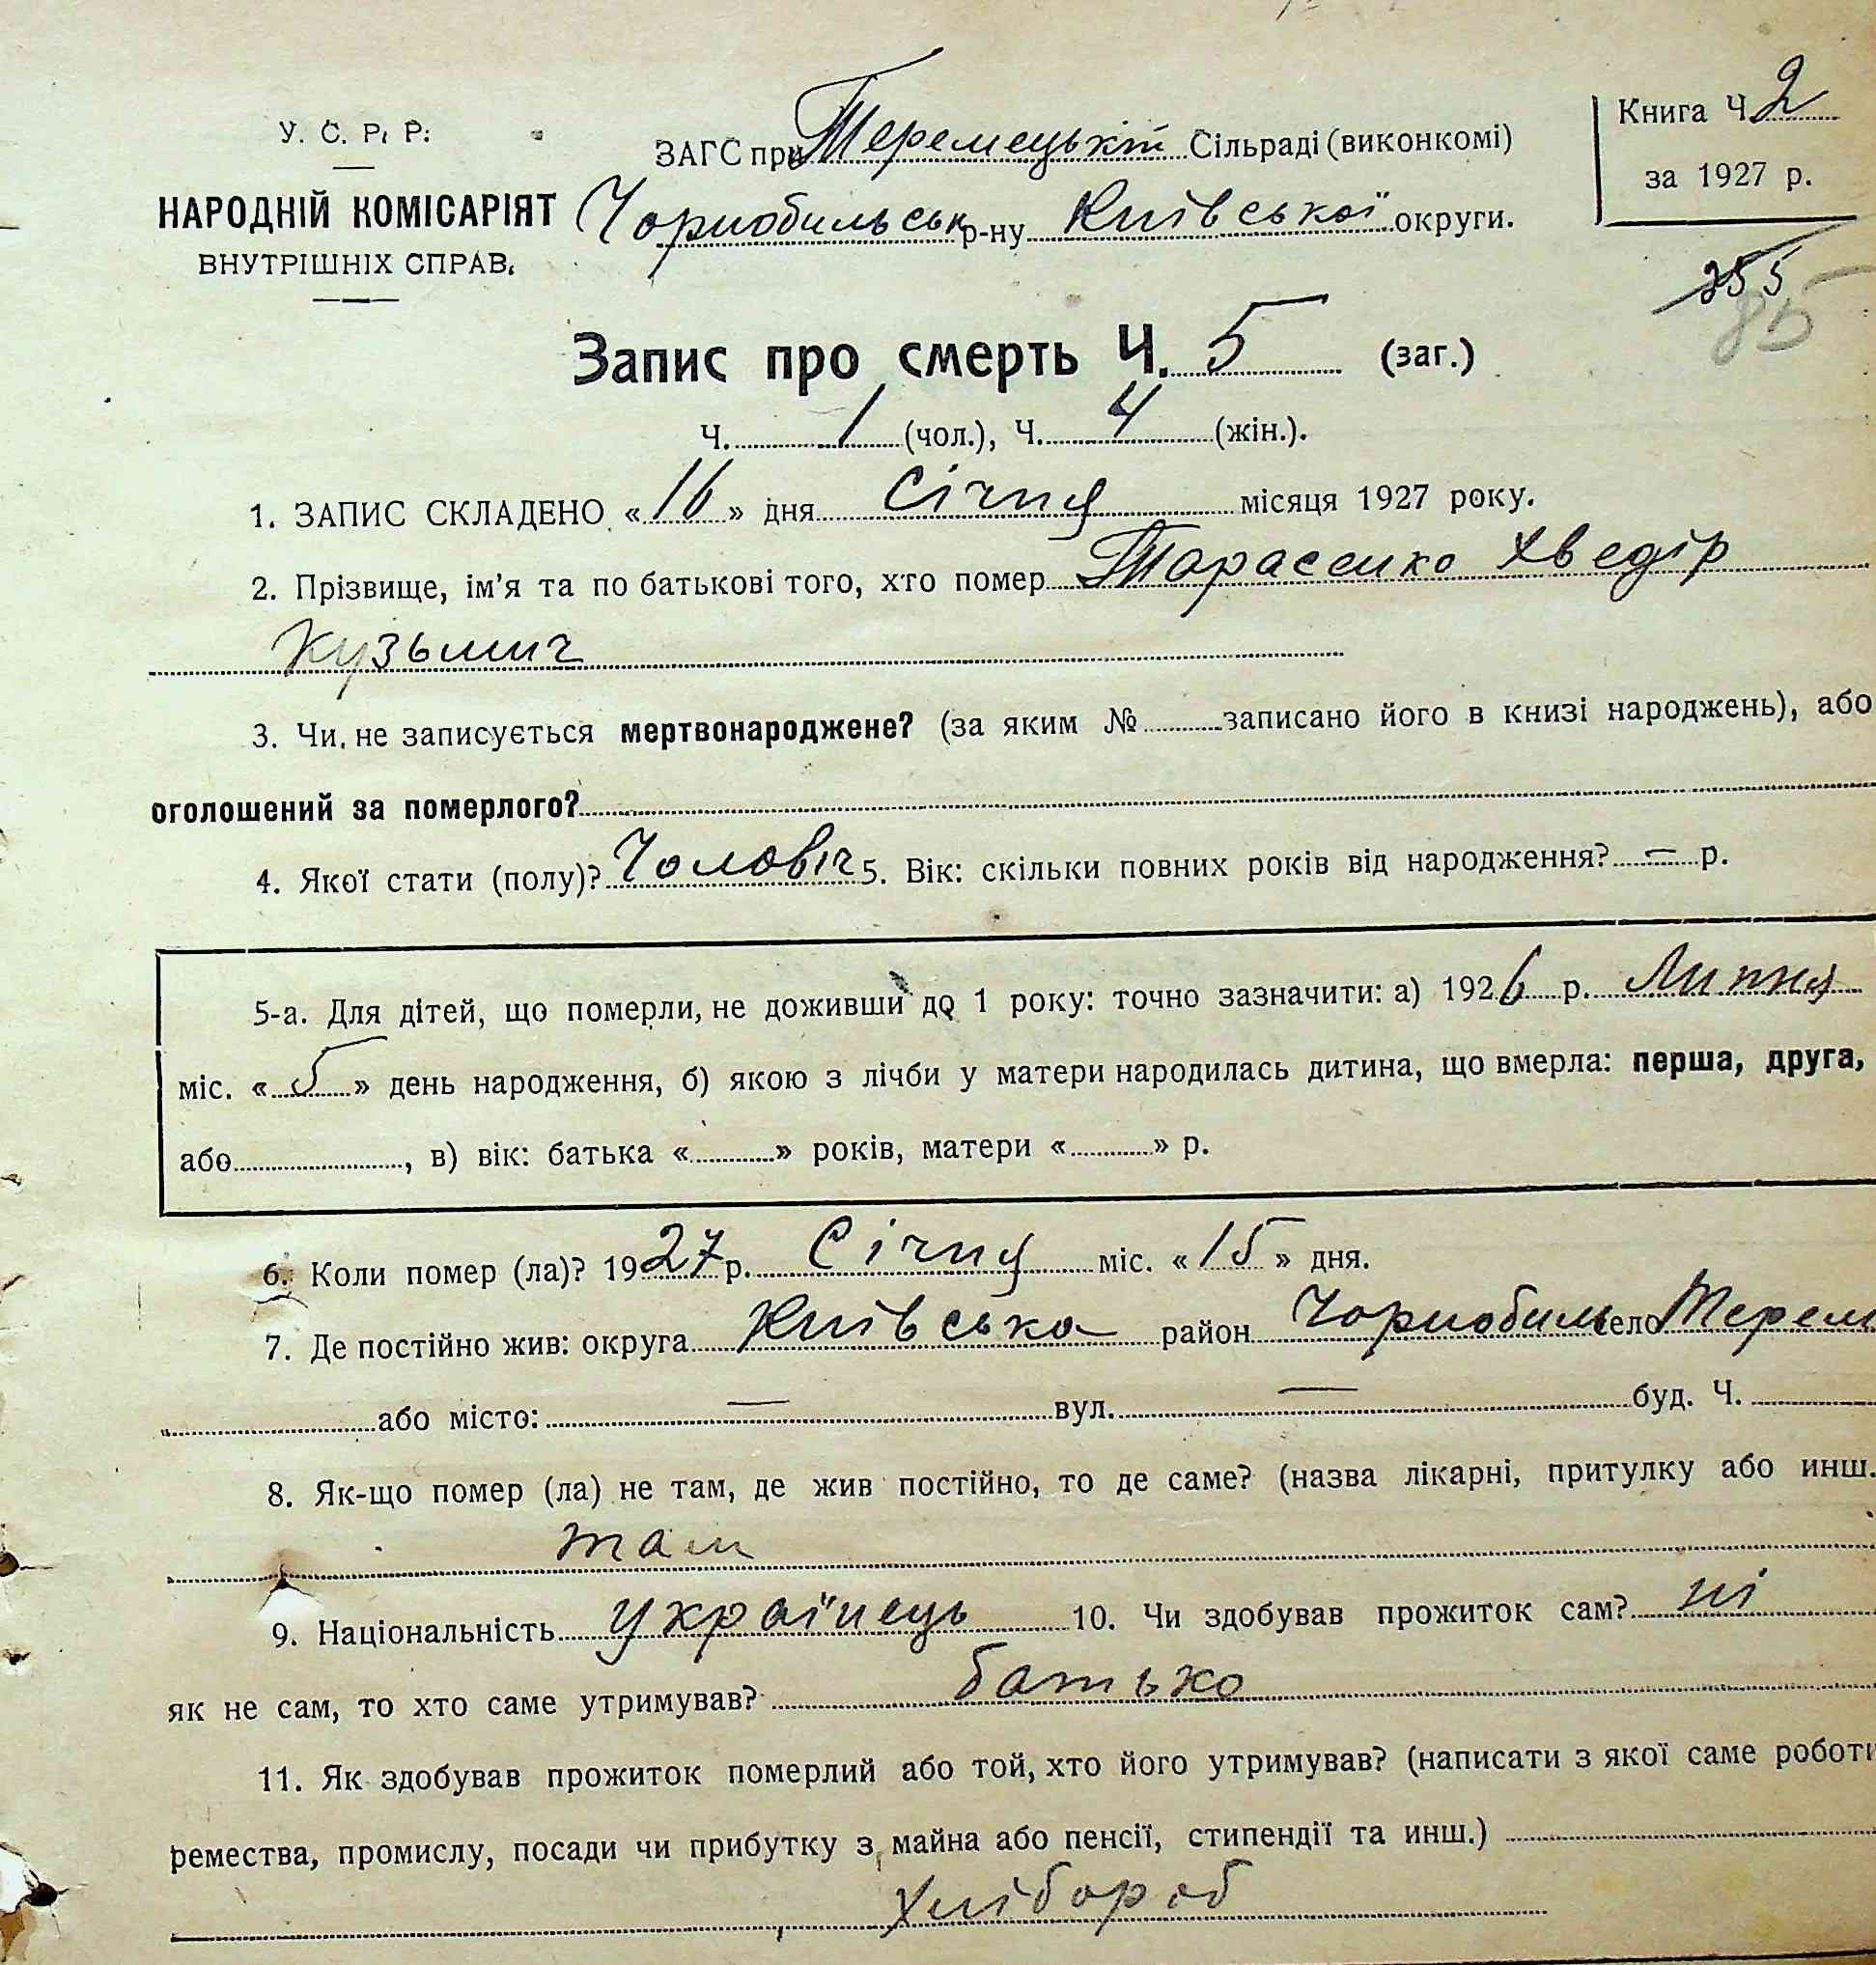 У. С. Р. Р.
НАРОДНІЙ КОМІСАРІЯТ
ВНУТРІШНІХ СПРАВ.
ЗАГС при Теремецькій Сільраді (виконкомі)
Чорнобильськ р-ну Київської округи.
Книга Ч. 2
за 1927 р.
355
85
Запис про смерть Ч. 5 (заг.)
Ч. 1 (чол.), Ч. 4 (жін.).
1. ЗАПИС СКЛАДЕНО «16» дня Січня місяця 1927 року.
2. Прізвище, ім'я та по батькові того, хто помер Тарасенко Хведір
Кузьмич
3. Чи не записується мертвонароджене? (за яким № записано його в книзі народжень), або
оголошений за померлого?
4. Якої стати (полу)? Чоловіч 5. Вік: скільки повних років від народження? — р.
5-а. Для дітей, що померли, не доживши до 1 року: точно зазначити: а) 1926 р. Липня
міс. «5» день народження, б) якою з лічби у матери народилась дитина, що вмерла: перша, друга,
або , в) вік: батька « » років, матери « » р.
6. Коли помер (ла)? 1927 р. Січня міс. «15» дня.
7. Де постійно жив: округа Київська район Чорнобиль село Терем
або місто: — вул. — буд. Ч.
8. Як-що помер (ла) не там, де жив постійно, то де саме? (назва лікарні, притулку або инш.
там
9. Національність Українець 10. Чи здобував прожиток сам? ні
як не сам, то хто саме утримував? батько
11. Як здобував прожиток померлий або той, хто його утримував? (написати з якої саме роботи
ремества, промислу, посади чи прибутку з майна або пенсії, стипендії та инш.)
Хлібороб